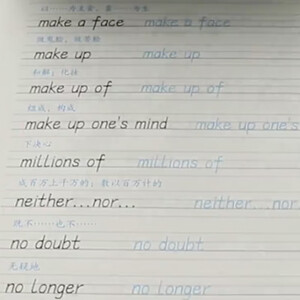 以……为主食，靠……为生
make a face make a face
做鬼脸，做苦脸
make up make up
和解；化妆
make up of make up of
组成，构成
make up one's mind make up one's
下决心
millions of millions of
成百万上千万的；数以百万计的
neither...nor... neither...nor
既不……也不……
no doubt no doubt
无疑地
no longer no longer